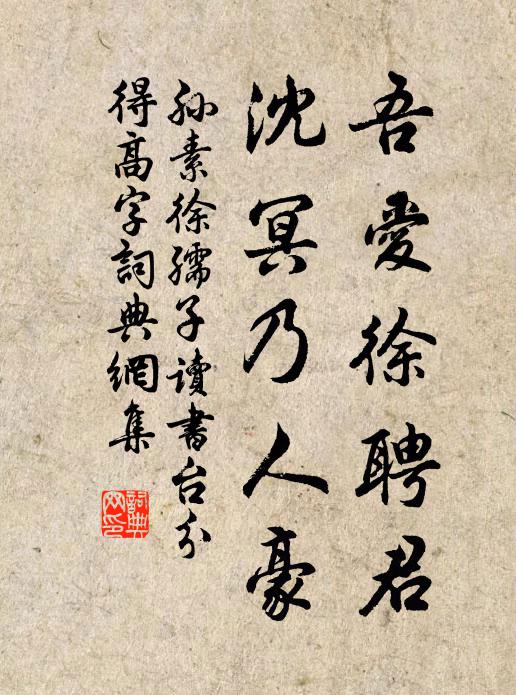 吾愛徐聘君
沈冥乃人豪
孙素徐孺子讀書台分
得高字詞典網集
詞典网印